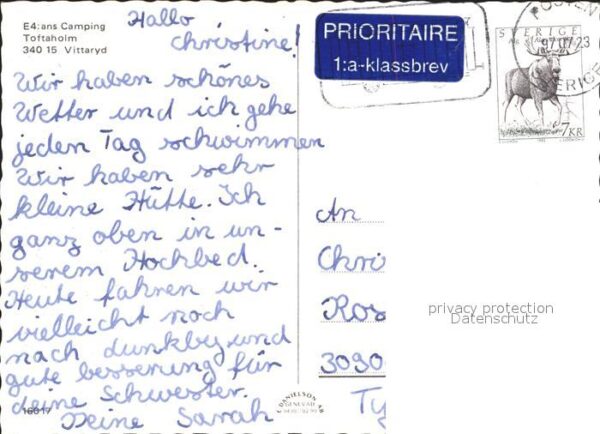 E4:ans Camping
Toftaholm
340 15 Vittaryd
Hallo
christine!
Wir haben schönes
Wetter und ich gehe
jeden Tag schwimmen
Wir haben sehr
kleine Hütte. Ich
ganz oben in un-
serem Hochbed.
Heute fahren wir
vielleicht noch
nach dunkby und
gute besserung für
deine Schwester.
Deine Sarah
16017
PRIORITAIRE
1:a-klassbrev
POSTEN
SVERIGE
97.07.23
SVERIGE
7KR
An
Chri
Ros
3090
Ty
privacy protection
Datenschutz
DANIELSON AB